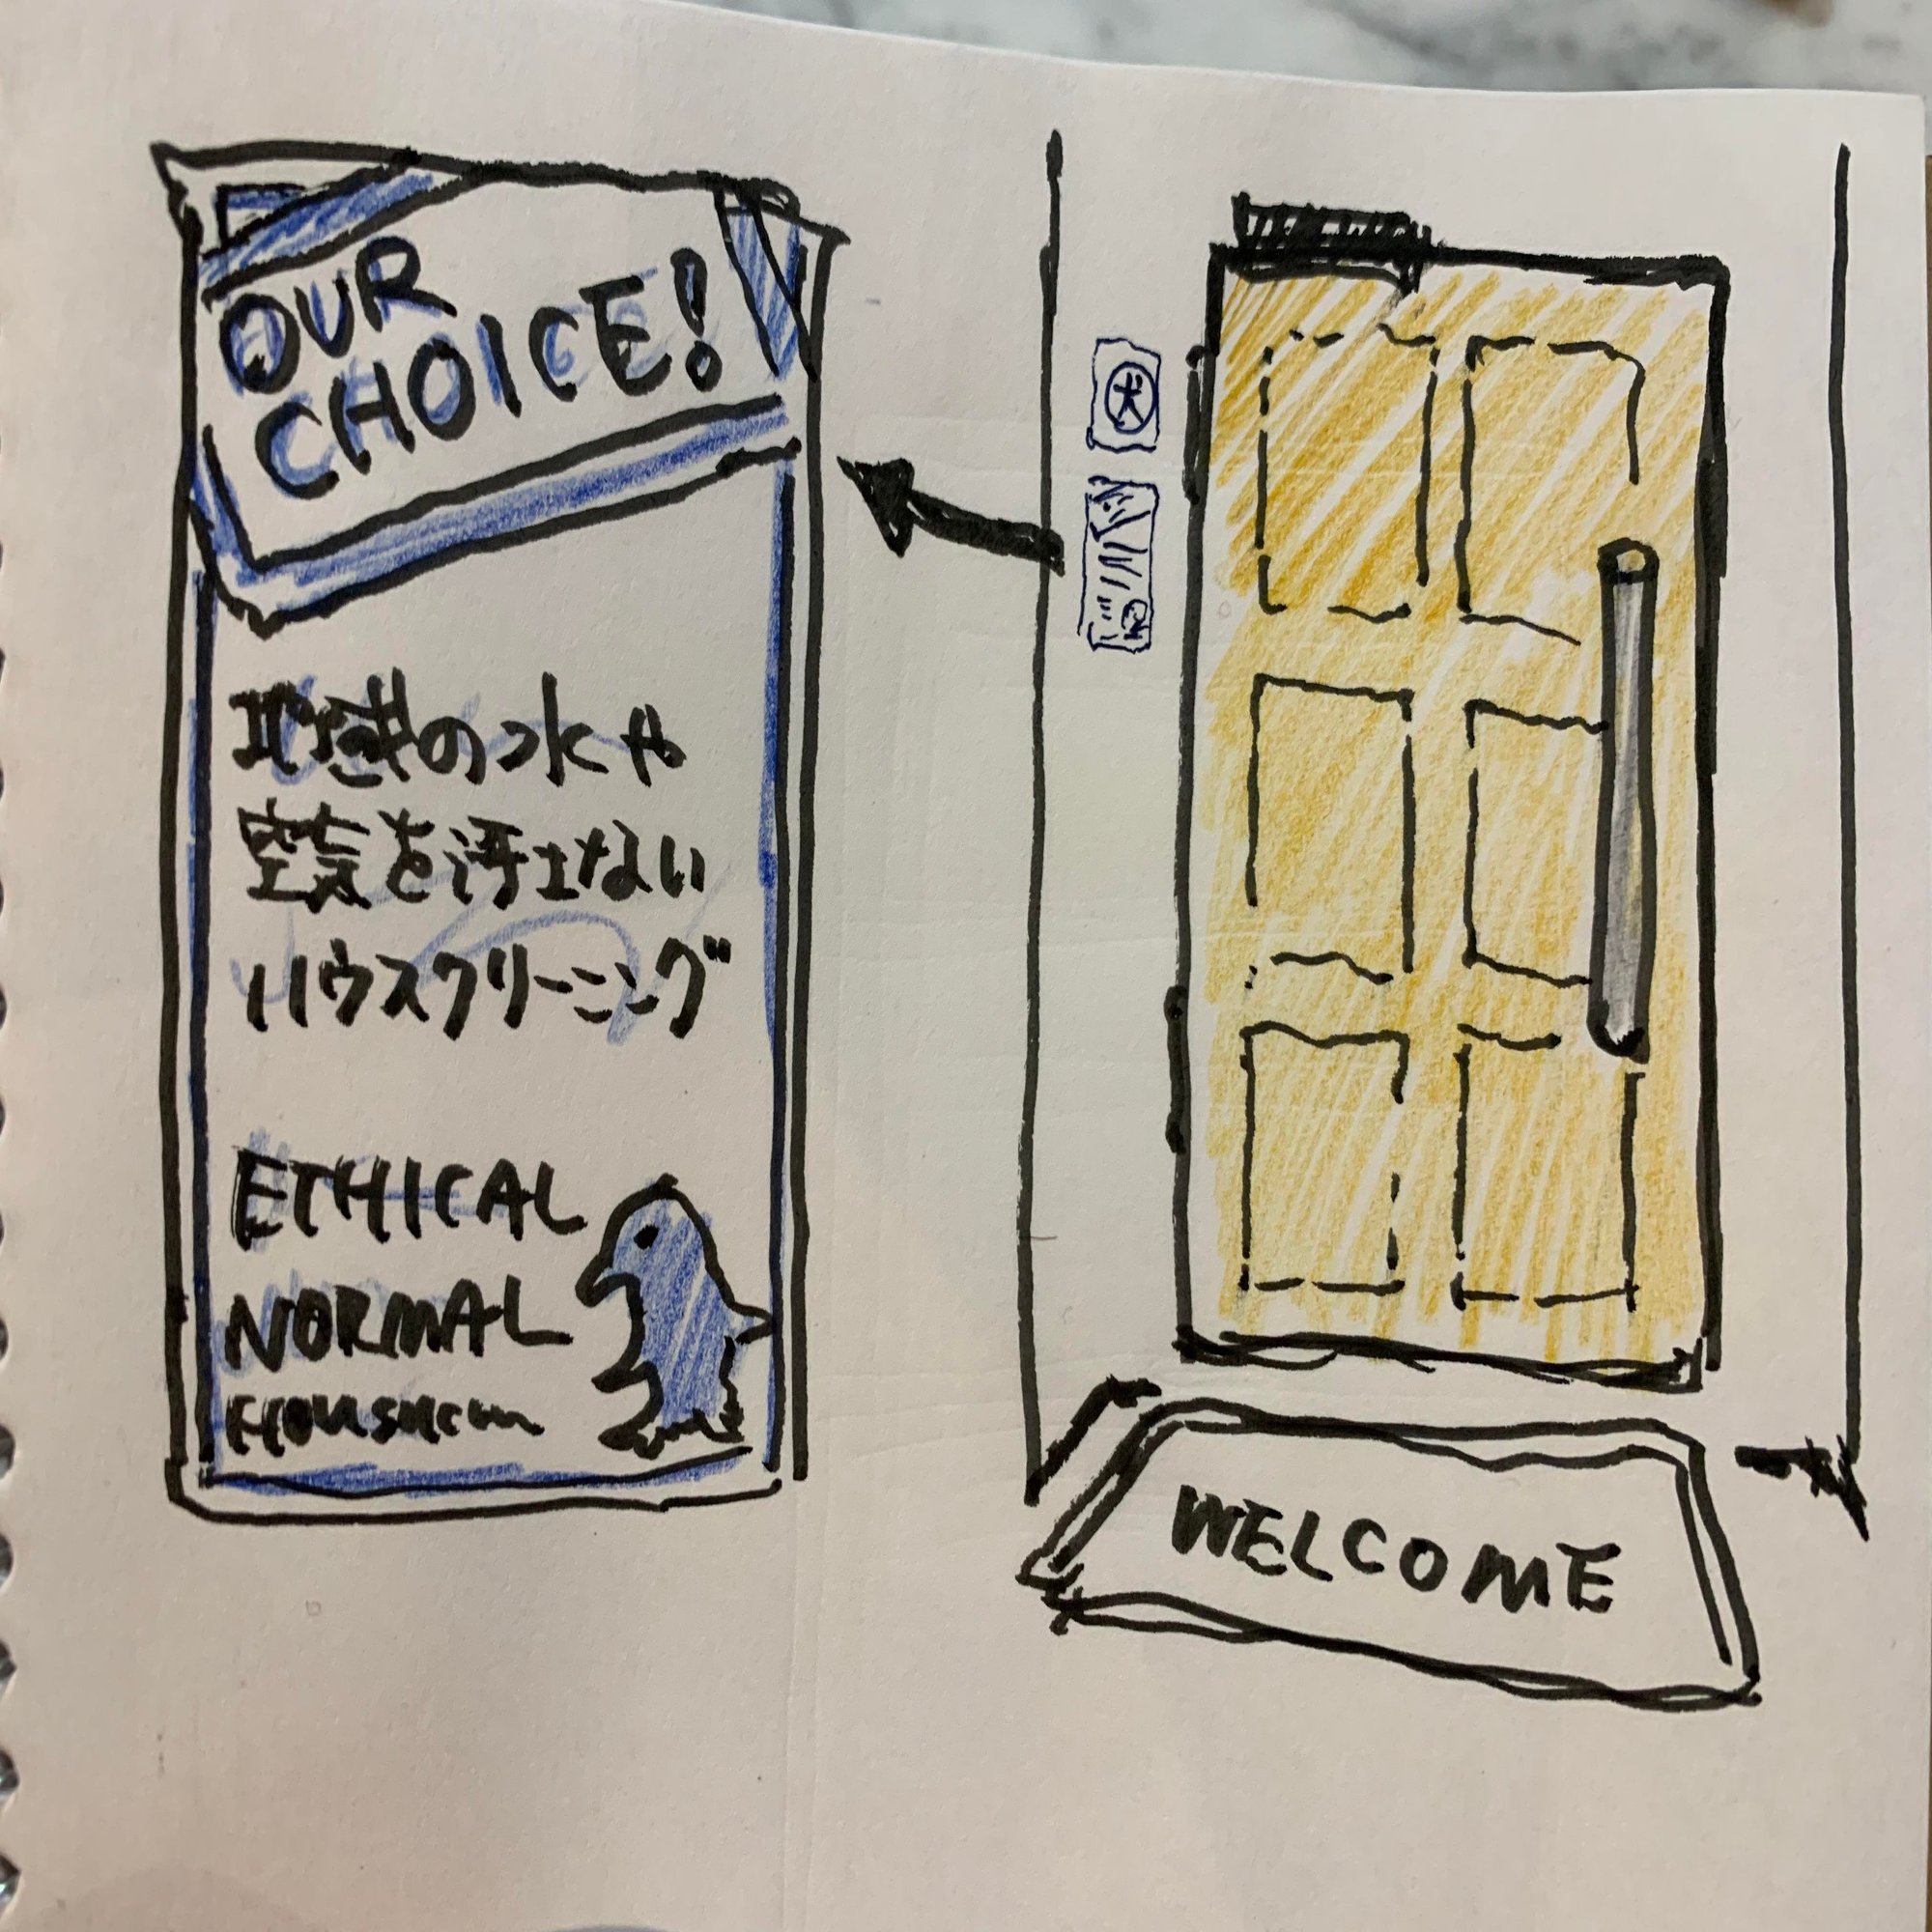 OUR
CHOICE!
地域の水や
空気を汚さない
ハウスクリーニング
ETHICAL
NORMAL
犬
WELCOME